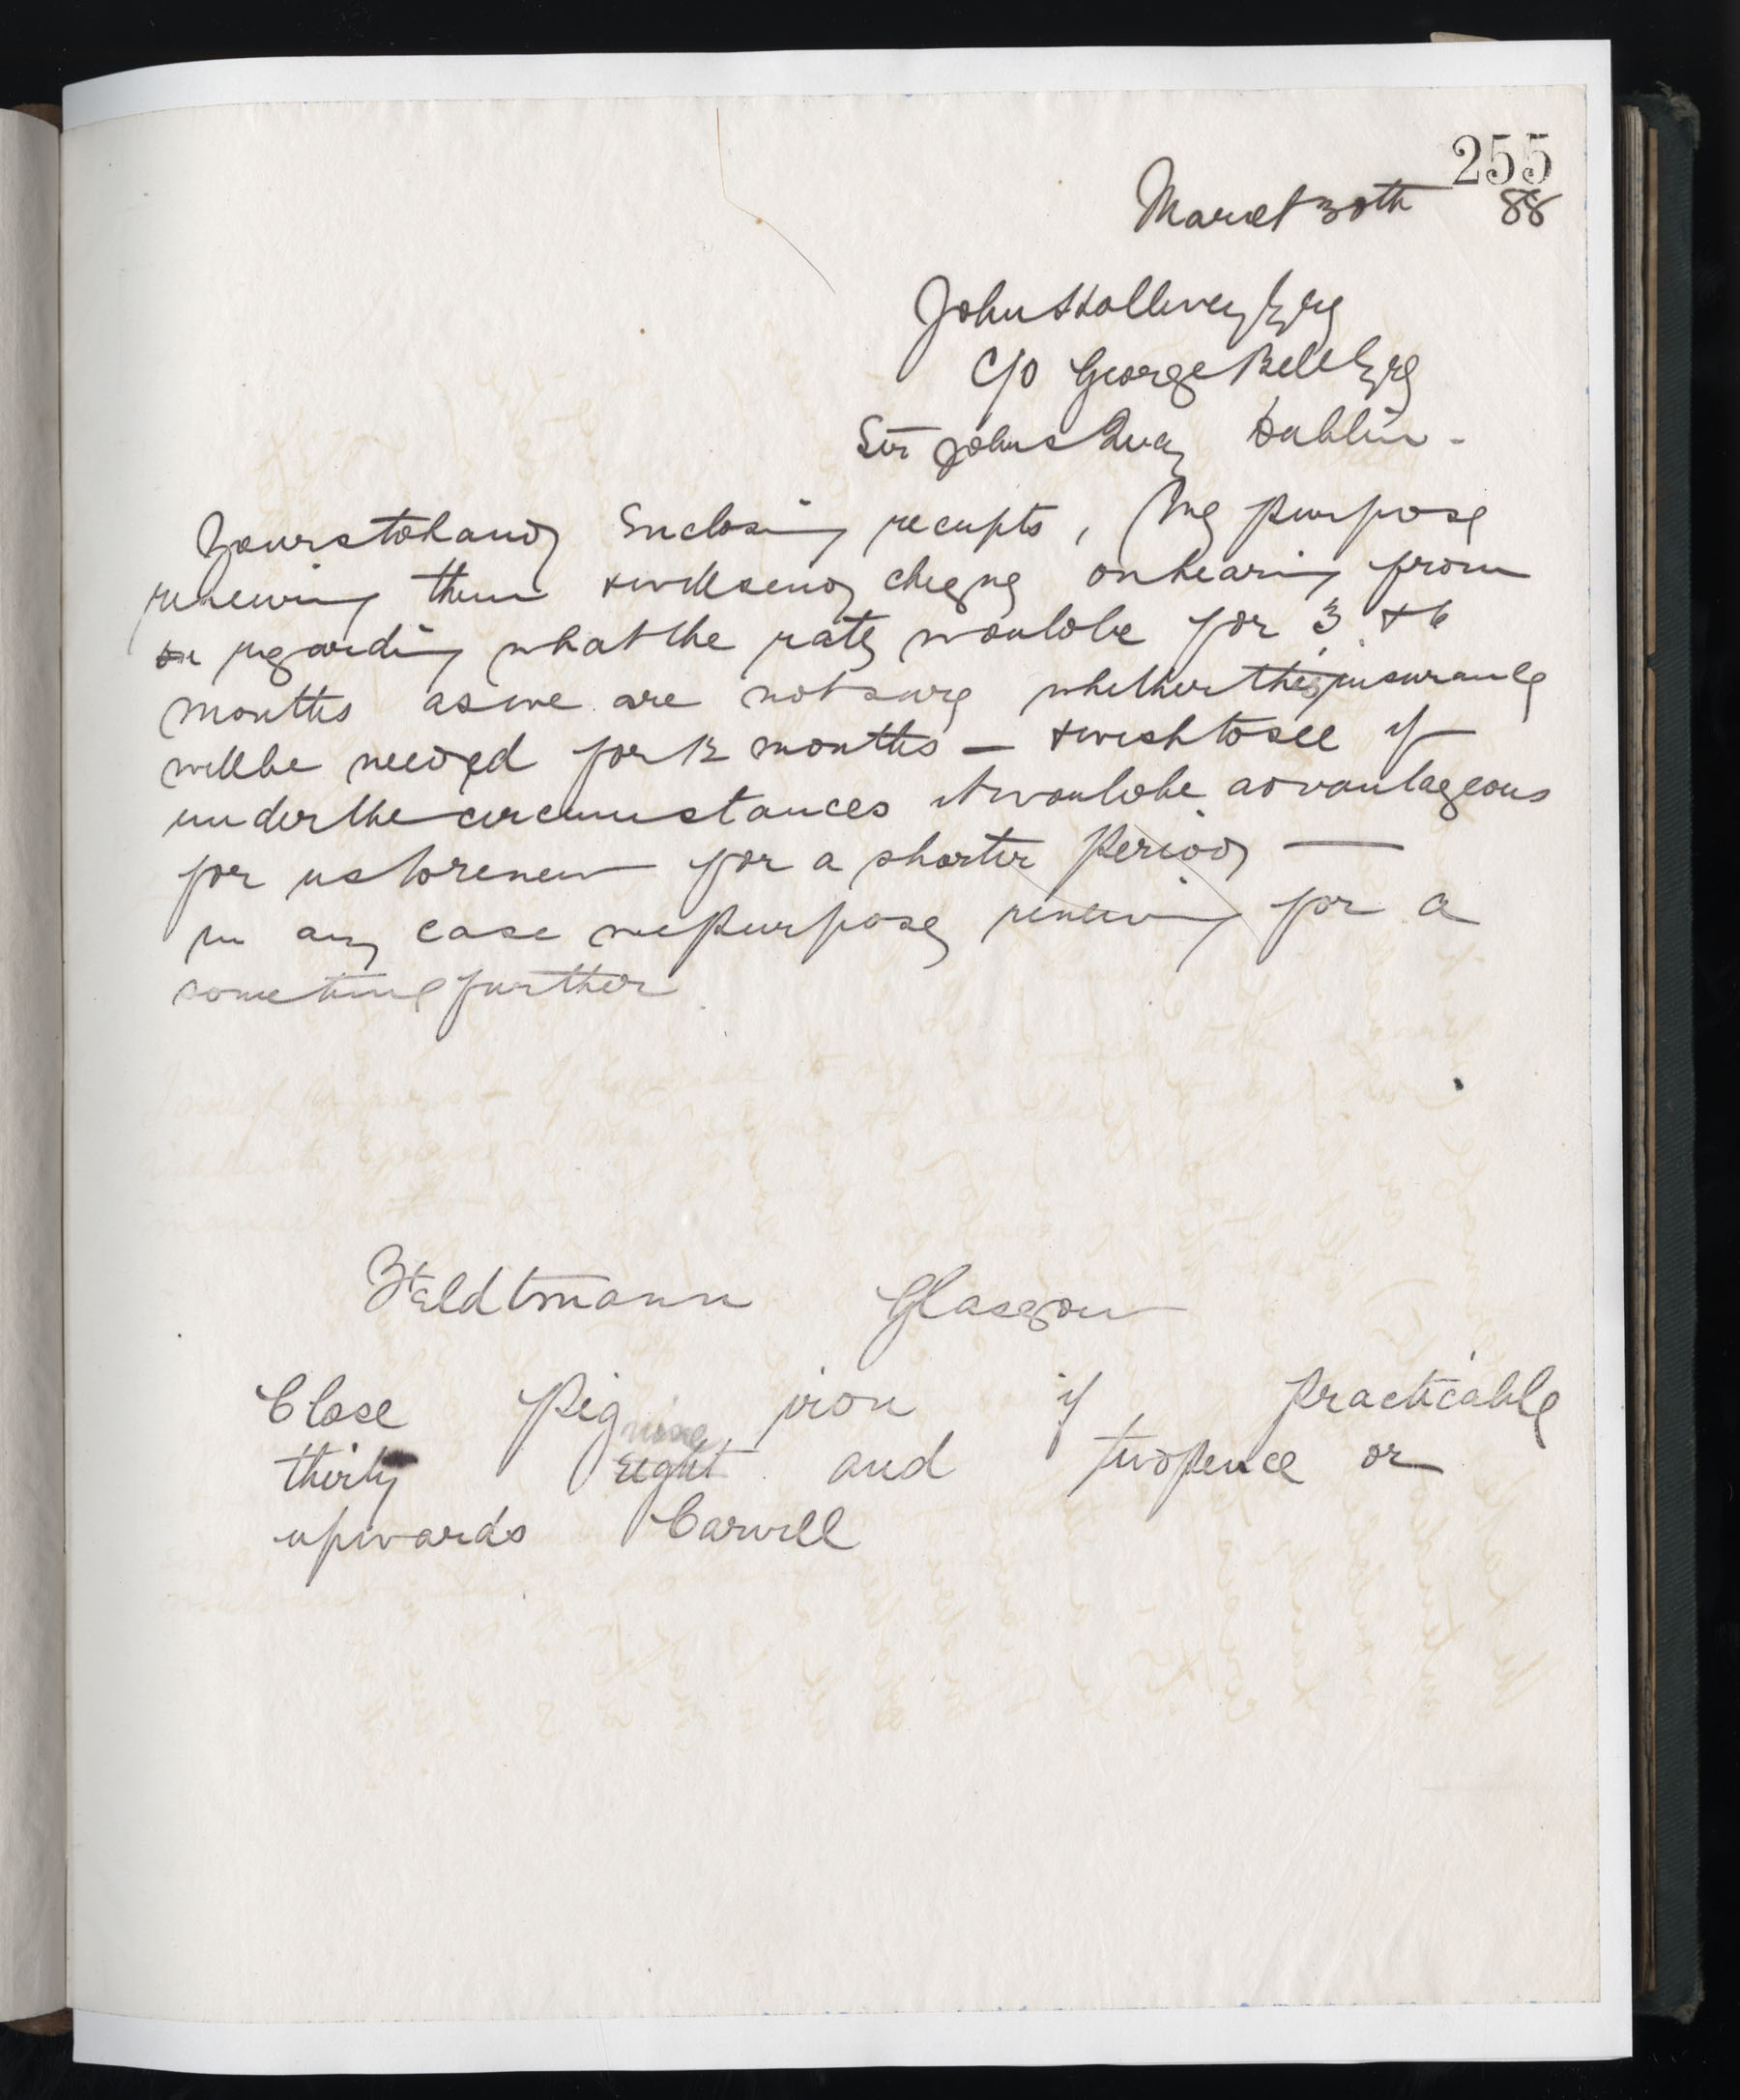 255
March 30th 88
John Hallivey Esq
C/o George Bell Esq
Sir Johns Quay Dublin -
Yours to hand Enclosing receipts, We purpose
renewing them & will send cheque on hearing from
regarding what the rate would be for 3 & 6
months as we are not sure whether the insurance
will be needed for 12 months — & wish to see if
under the circumstances it would be advantageous
for us to renew for a shorter Period —
in any case we Purpose renewing for a
sometime further
Feldtmann Glasgow
Close Pig iron if practicable
nine
thirty eight and twopence or
upwards Carvill